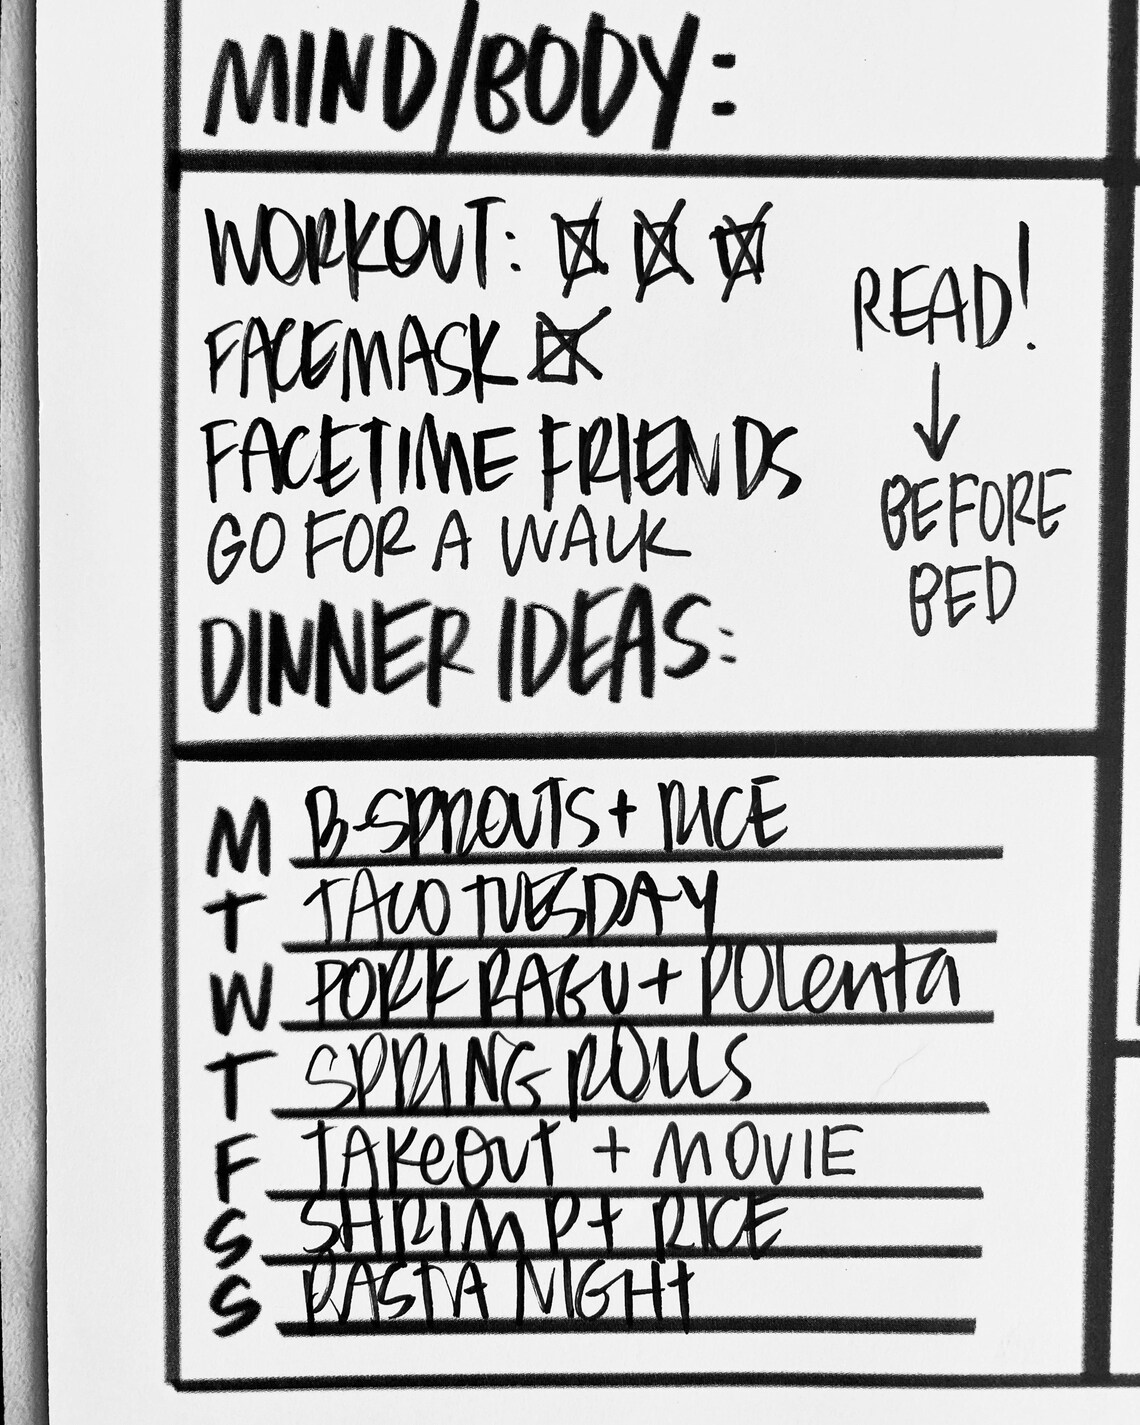 MIND/BODY:
WORKOUT: ☒ ☒ ☒
FACEMASK ☒
FACETIME FRIENDS
GO FOR A WALK
READ!
↓
BEFORE
BED
DINNER IDEAS:
M B-SPROUTS + RICE
T TACO TUESDAY
W PORK RAGU + POLenta
T SPRING ROLLS
F TAKeOUT + MOVIE
S SHRIMP + RICE
S PASTA NIGHT